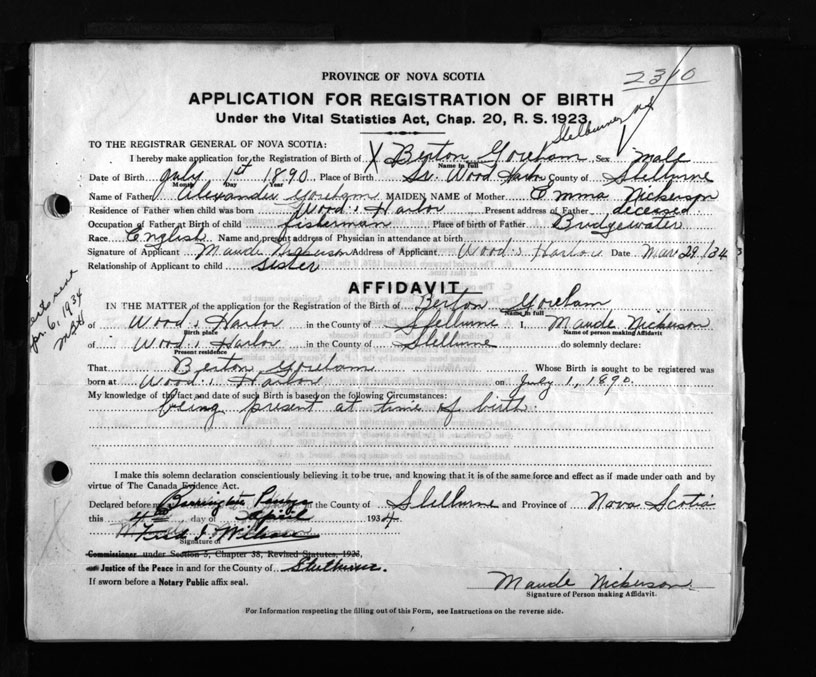 PROVINCE OF NOVA SCOTIA
2310
APPLICATION FOR REGISTRATION OF BIRTH
Under the Vital Statistics Act, Chap. 20, R. S. 1923.
Shelburne
TO THE REGISTRAR GENERAL OF NOVA SCOTIA:
I hereby make application for the Registration of Birth of X Berton Goreham Sex Male
Name in full
Date of Birth July 1st 1890 Place of Birth Wood Harbor County of Shelburne
Month Day Year
Name of Father Alexander Goreham MAIDEN NAME of Mother Emma Nickerson
Residence of Father when child was born Wood's Harbor Present address of Father deceased
Occupation of Father at Birth of child fisherman Place of birth of Father Bridgewater
Race English Name and present address of Physician in attendance at birth
Signature of Applicant Maude Nickerson Address of Applicant Wood's Harbor Date Mar 29/34
Relationship of Applicant to child Sister
Apr. 6, 1934
AFFIDAVIT
IN THE MATTER of the application for the Registration of the Birth of Berton Goreham
Name in full
of Wood's Harbor in the County of Shelburne I, Maude Nickerson
Birth place Name of person making Affidavit
of Wood's Harbor in the County of Shelburne do solemnly declare:
Present residence
That Berton Goreham Whose Birth is sought to be registered was
born at Wood's Harbor on July 1, 1890.
My knowledge of the fact and date of such Birth is based on the following Circumstances:
being present at time of birth.
I make this solemn declaration conscientiously believing it to be true, and knowing that it is of the same force and effect as if made under oath and by
virtue of The Canada Evidence Act.
Declared before me Barrington Passage the County of Shelburne and Province of Nova Scotia
this 4th day of April 1934
Signature of
Commissioner under Section 5, Chapter 38, Revised Statutes, 1923,
Justice of the Peace in and for the County of Shelburne.
If sworn before a Notary Public affix seal.
Maude Nickerson
Signature of Person making Affidavit.
For Information respecting the filling out of this Form, see Instructions on the reverse side.